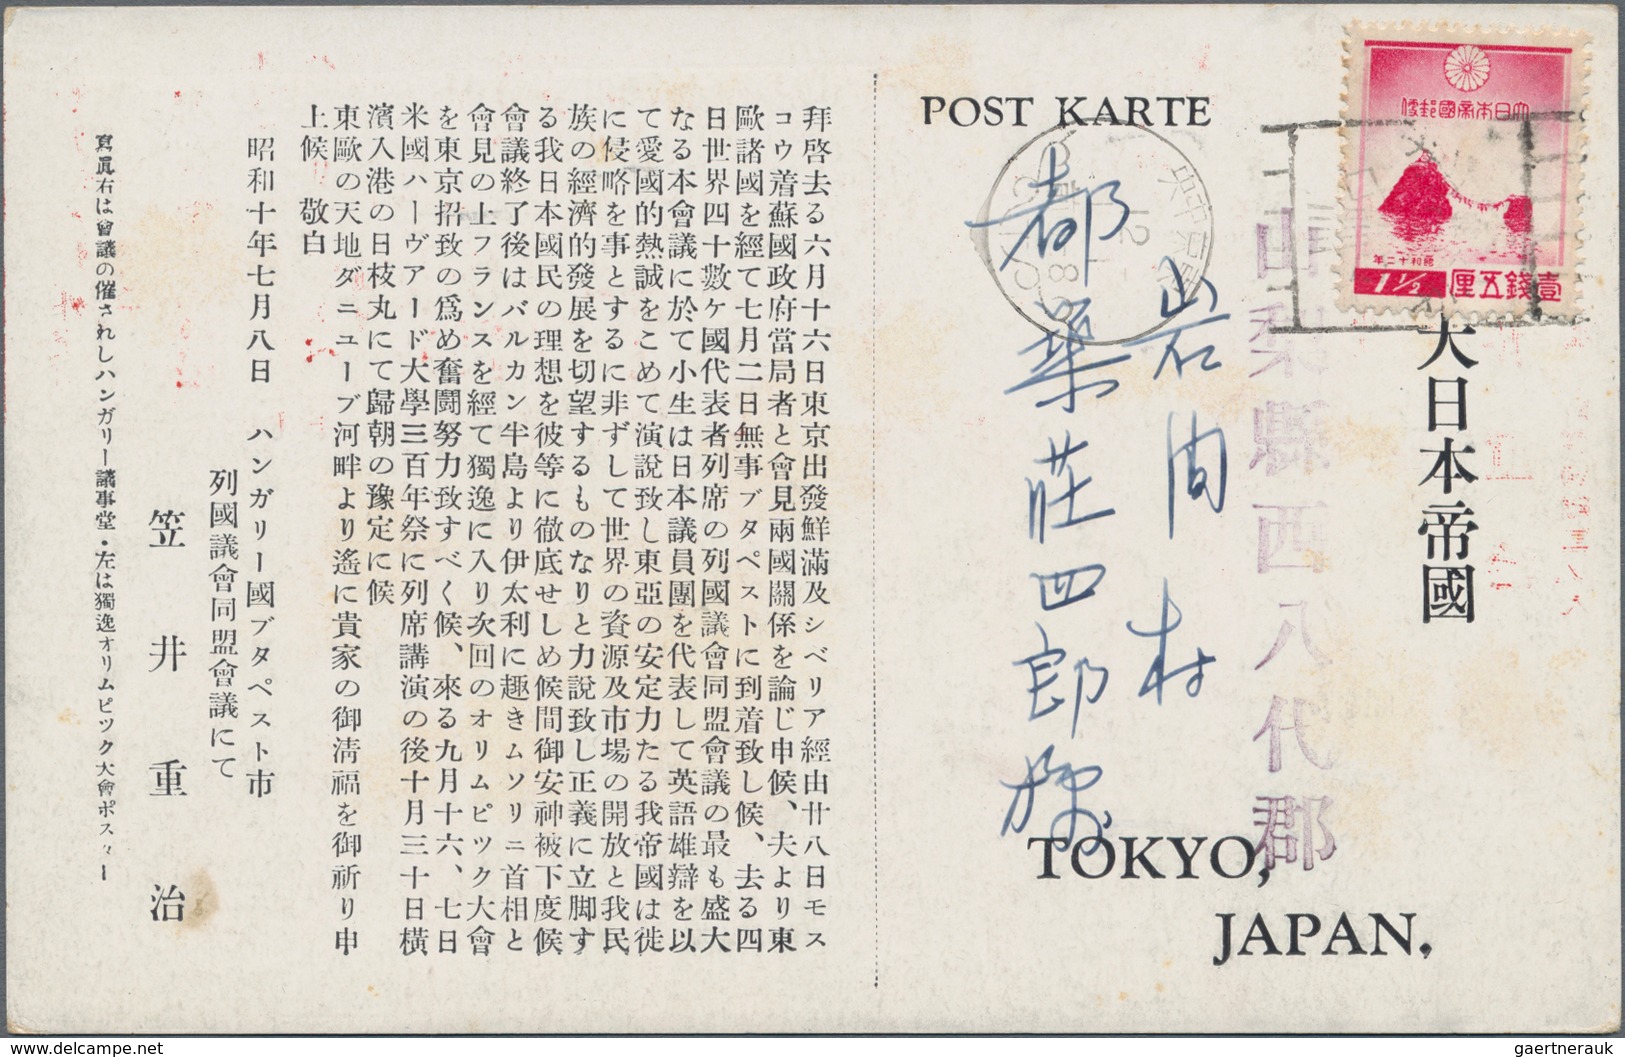 POST KARTE
大日本帝國郵便
昭和十二年
1½
壹錢五厘
大日本帝國
山梨縣西八代郡
岩间村
都築荘四郎様
TOKYO,
JAPAN.
拜啓去る六月十六日東京出發鮮滿及シベリア經由廿八日モス
コウ着蘇國政府當局者と會見兩國關係を論じ申候、夫より東
歐諸國を經て七月二日無事ブタペストに到着致し候、去る四
日世界四十數ケ國代表者列席の列國議會同盟會議の最も盛大
なる本會議に於て小生は日本議員團を代表して英語雄辯を以
て愛國的熱誠をこめて演說致し東亞の安定力たる我帝國は徒
に侵略を事とするに非ずして世界の資源及市場の開放と我民
族の經濟的發展を切望するものなりと力說致し正義に立脚す
る我日本國民の理想を彼等に徹底せしめ候間御安神被下度候
會議終了後はバルカン半島より伊太利に趣きムソリニ首相と
會見の上フランスを經て獨逸に入り次回のオリムピツク大會
を東京招致の爲め奮鬪努力致すべく候、來る九月十六、七日
米國ハーヴアード大學三百年祭に列席講演の後十月三十日橫
濱入港の日枝丸にて歸朝の豫定に候
東歐の天地ダニユーブ河畔より遙に貴家の御淸福を御祈り申
上候　敬白
昭和十年七月八日　ハンガリー國ブタペスト市
列國議會同盟會議にて
笠井重治
寫眞右は會議の催されしハンガリー議事堂・左は獨逸オリムピツク大會ポスター
gaertnerauk